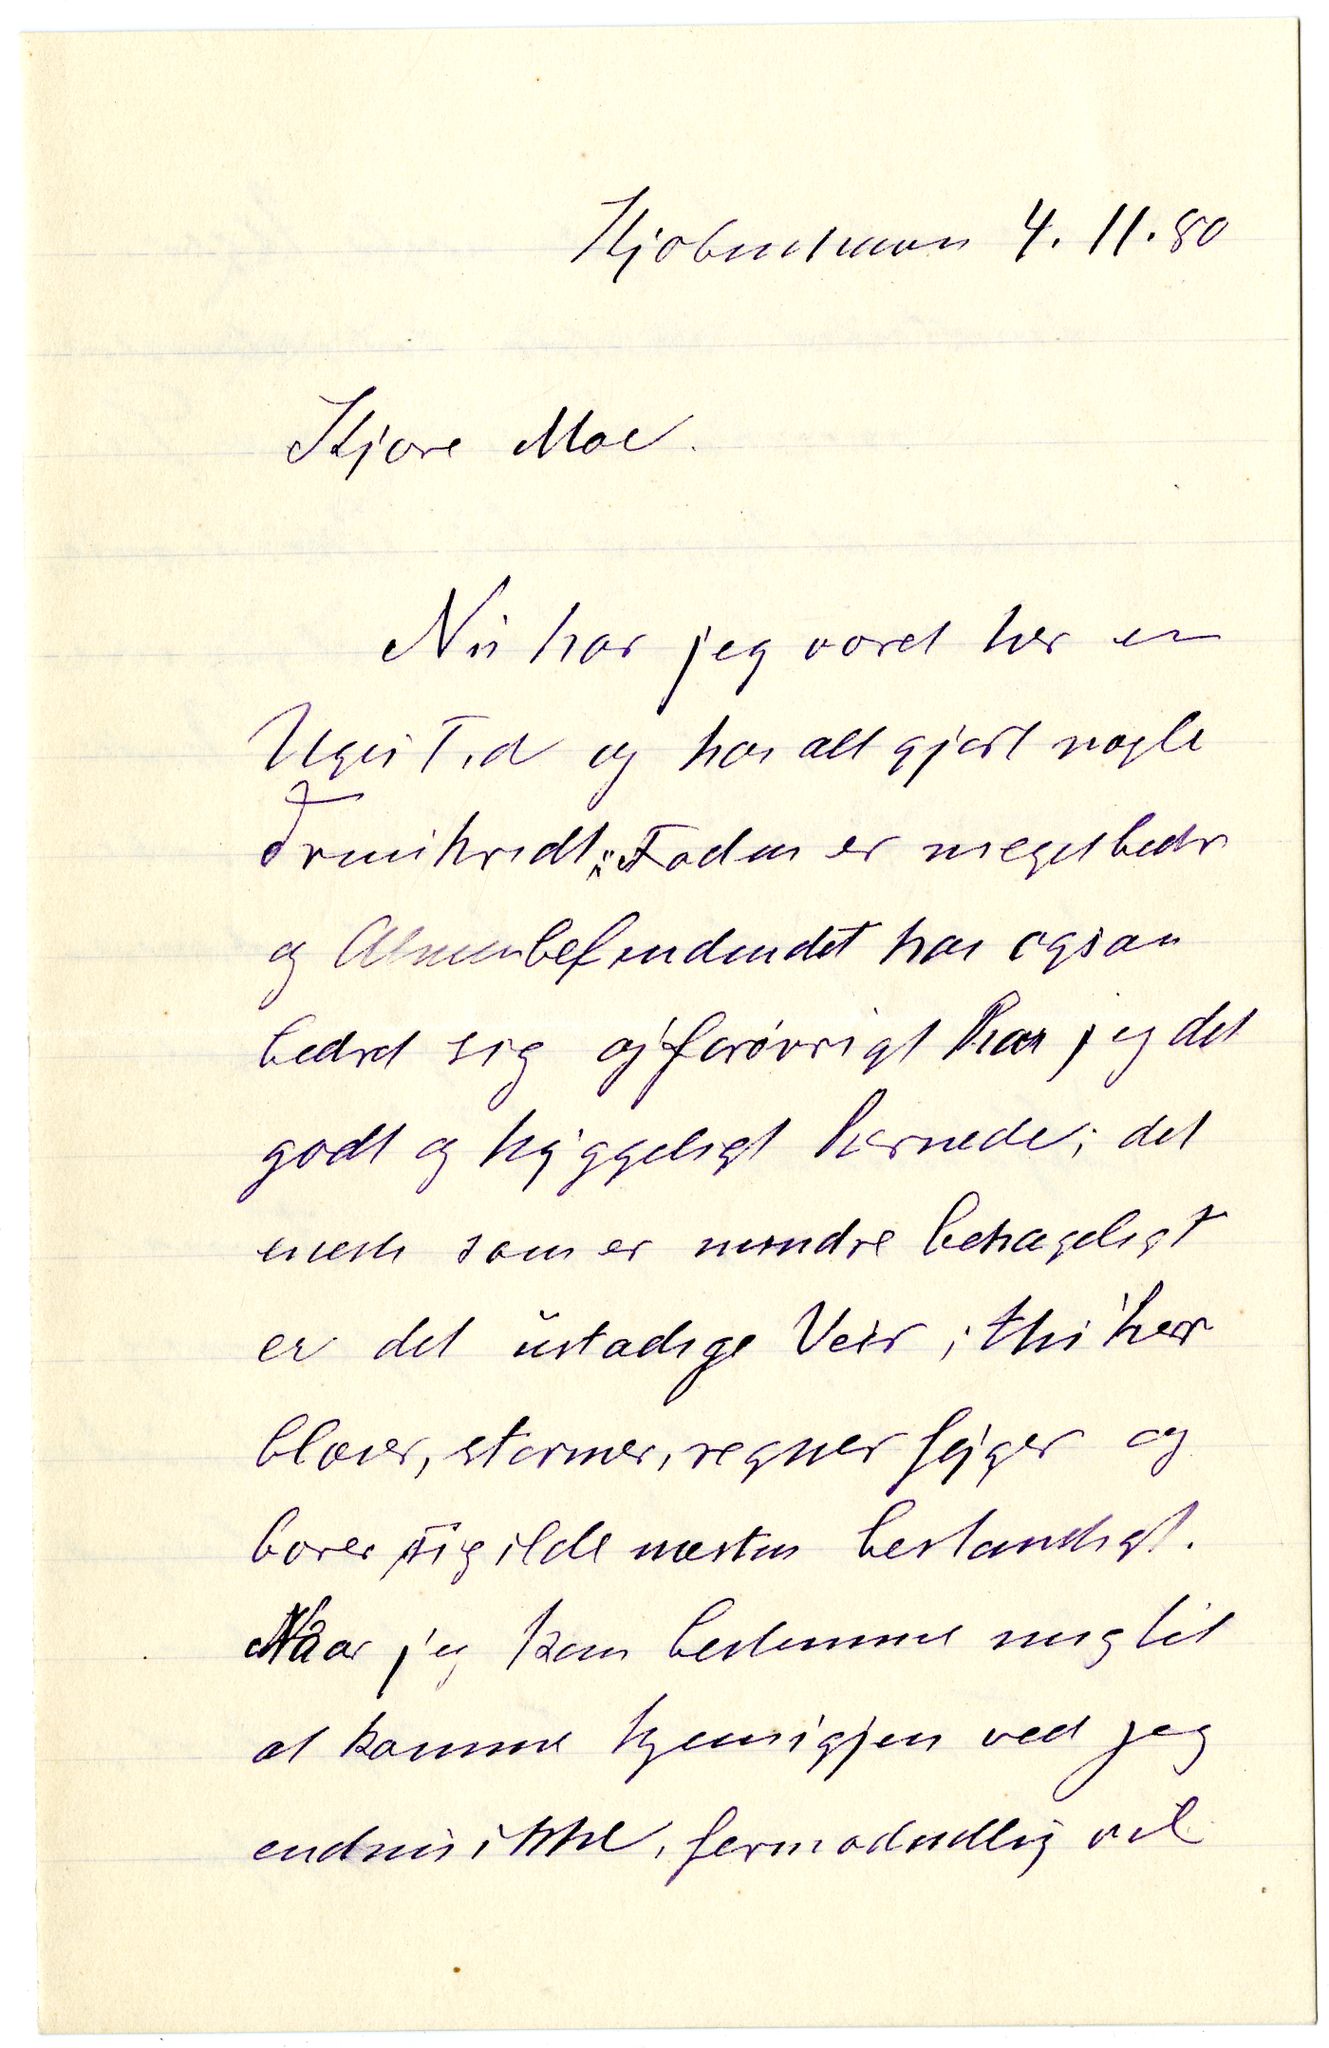 Kjøbenhavn 4. 11. 80
Kjære Moe.
Nu har jeg været her en
Uges Tid og har alt gjort nogle
Fremskridt; Foden er meget bedre
og Almenbefindendet har ogsaa
bedret sig og forøvrigt har jeg det
godt og hyggeligt hernede; det
eneste som er mindre behageligt
er det ustadige Veir; thi her
blæser, stormer, regner fyger og
bærer sig ilde næsten bestandigt.
Naar jeg kan bestemme mig til
at komme hjem igjen ved jeg
endnu ikke, formodentlig vil